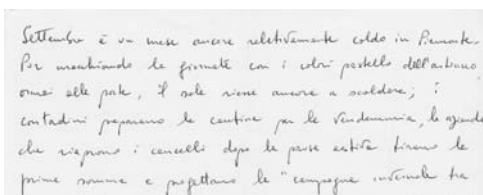 Settembre è un mese ancora relativamente caldo in Piemonte.
Pur macchiando le giornate con i colori pastello dell'autunno
ormai alle porte, il sole viene ancora a scaldare; i
contadini preparano le cantine per la Vendemmia, le aziende
che riaprono i cancelli dopo la pausa estiva tirano le
prime somme e progettano la "campagna invernale tra